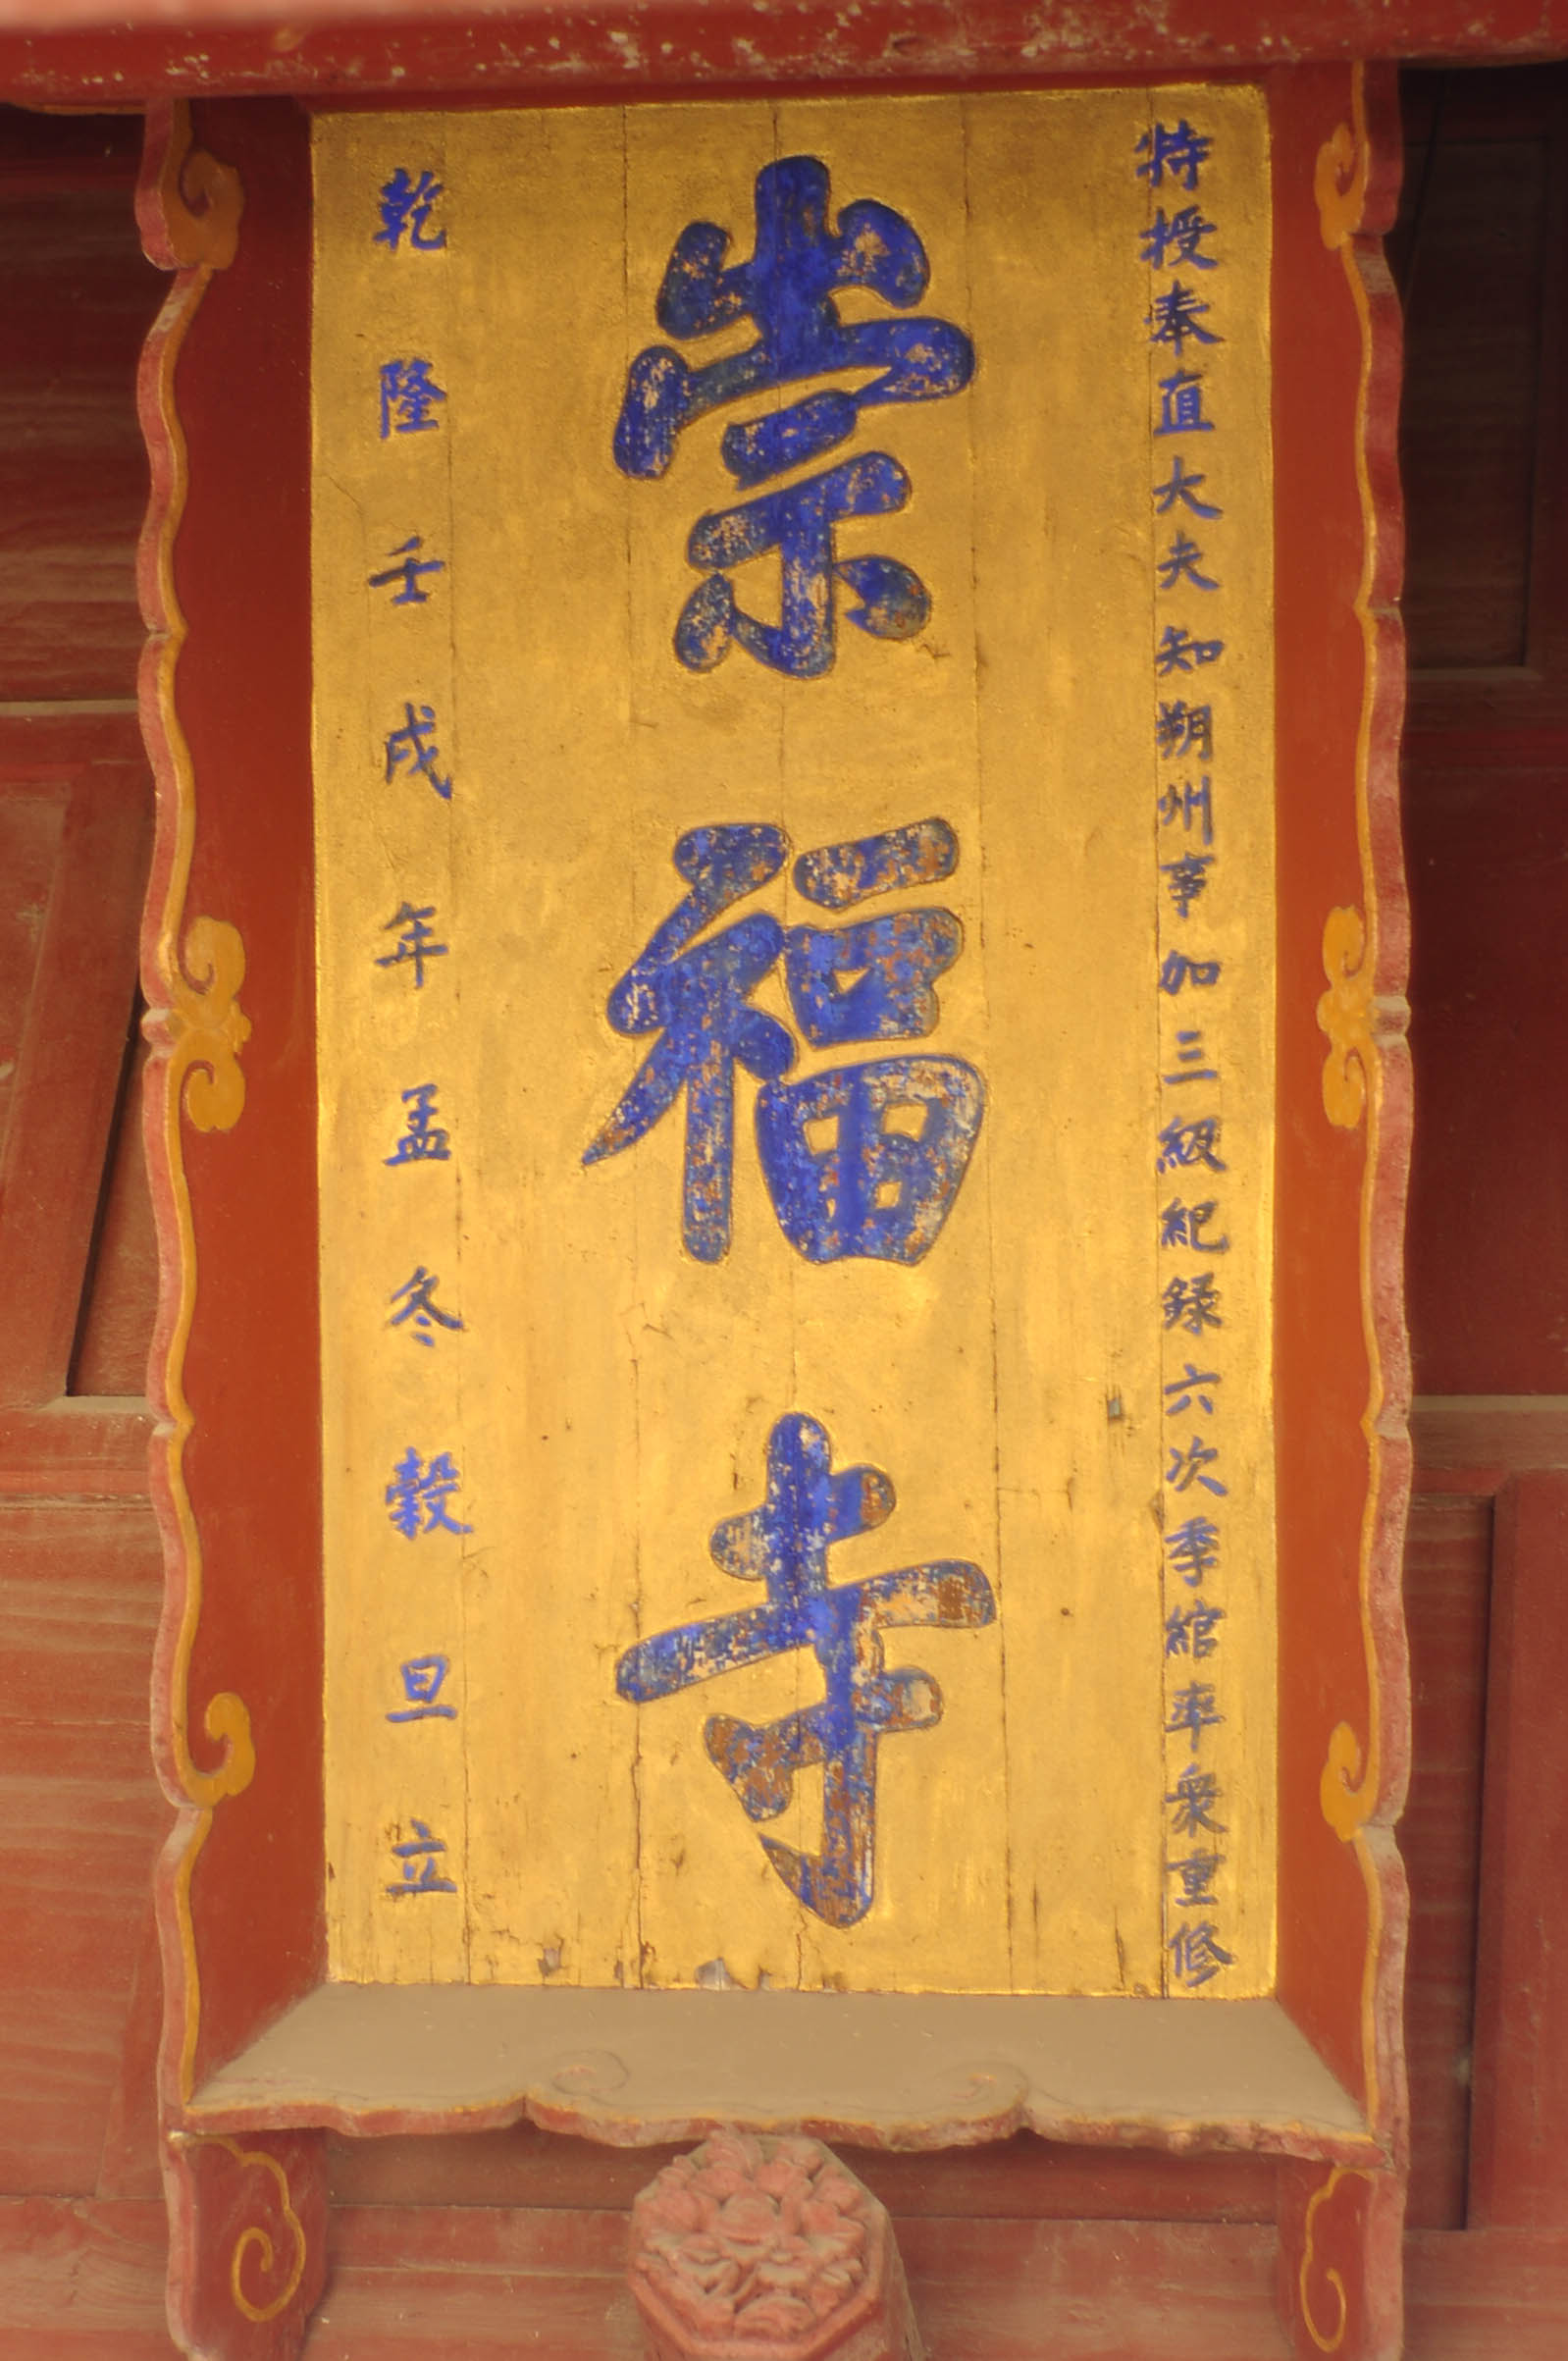 特授奉直大夫知朔州事加三級紀錄六次季綰率衆重修
崇福寺
乾隆壬戌年孟冬穀旦立